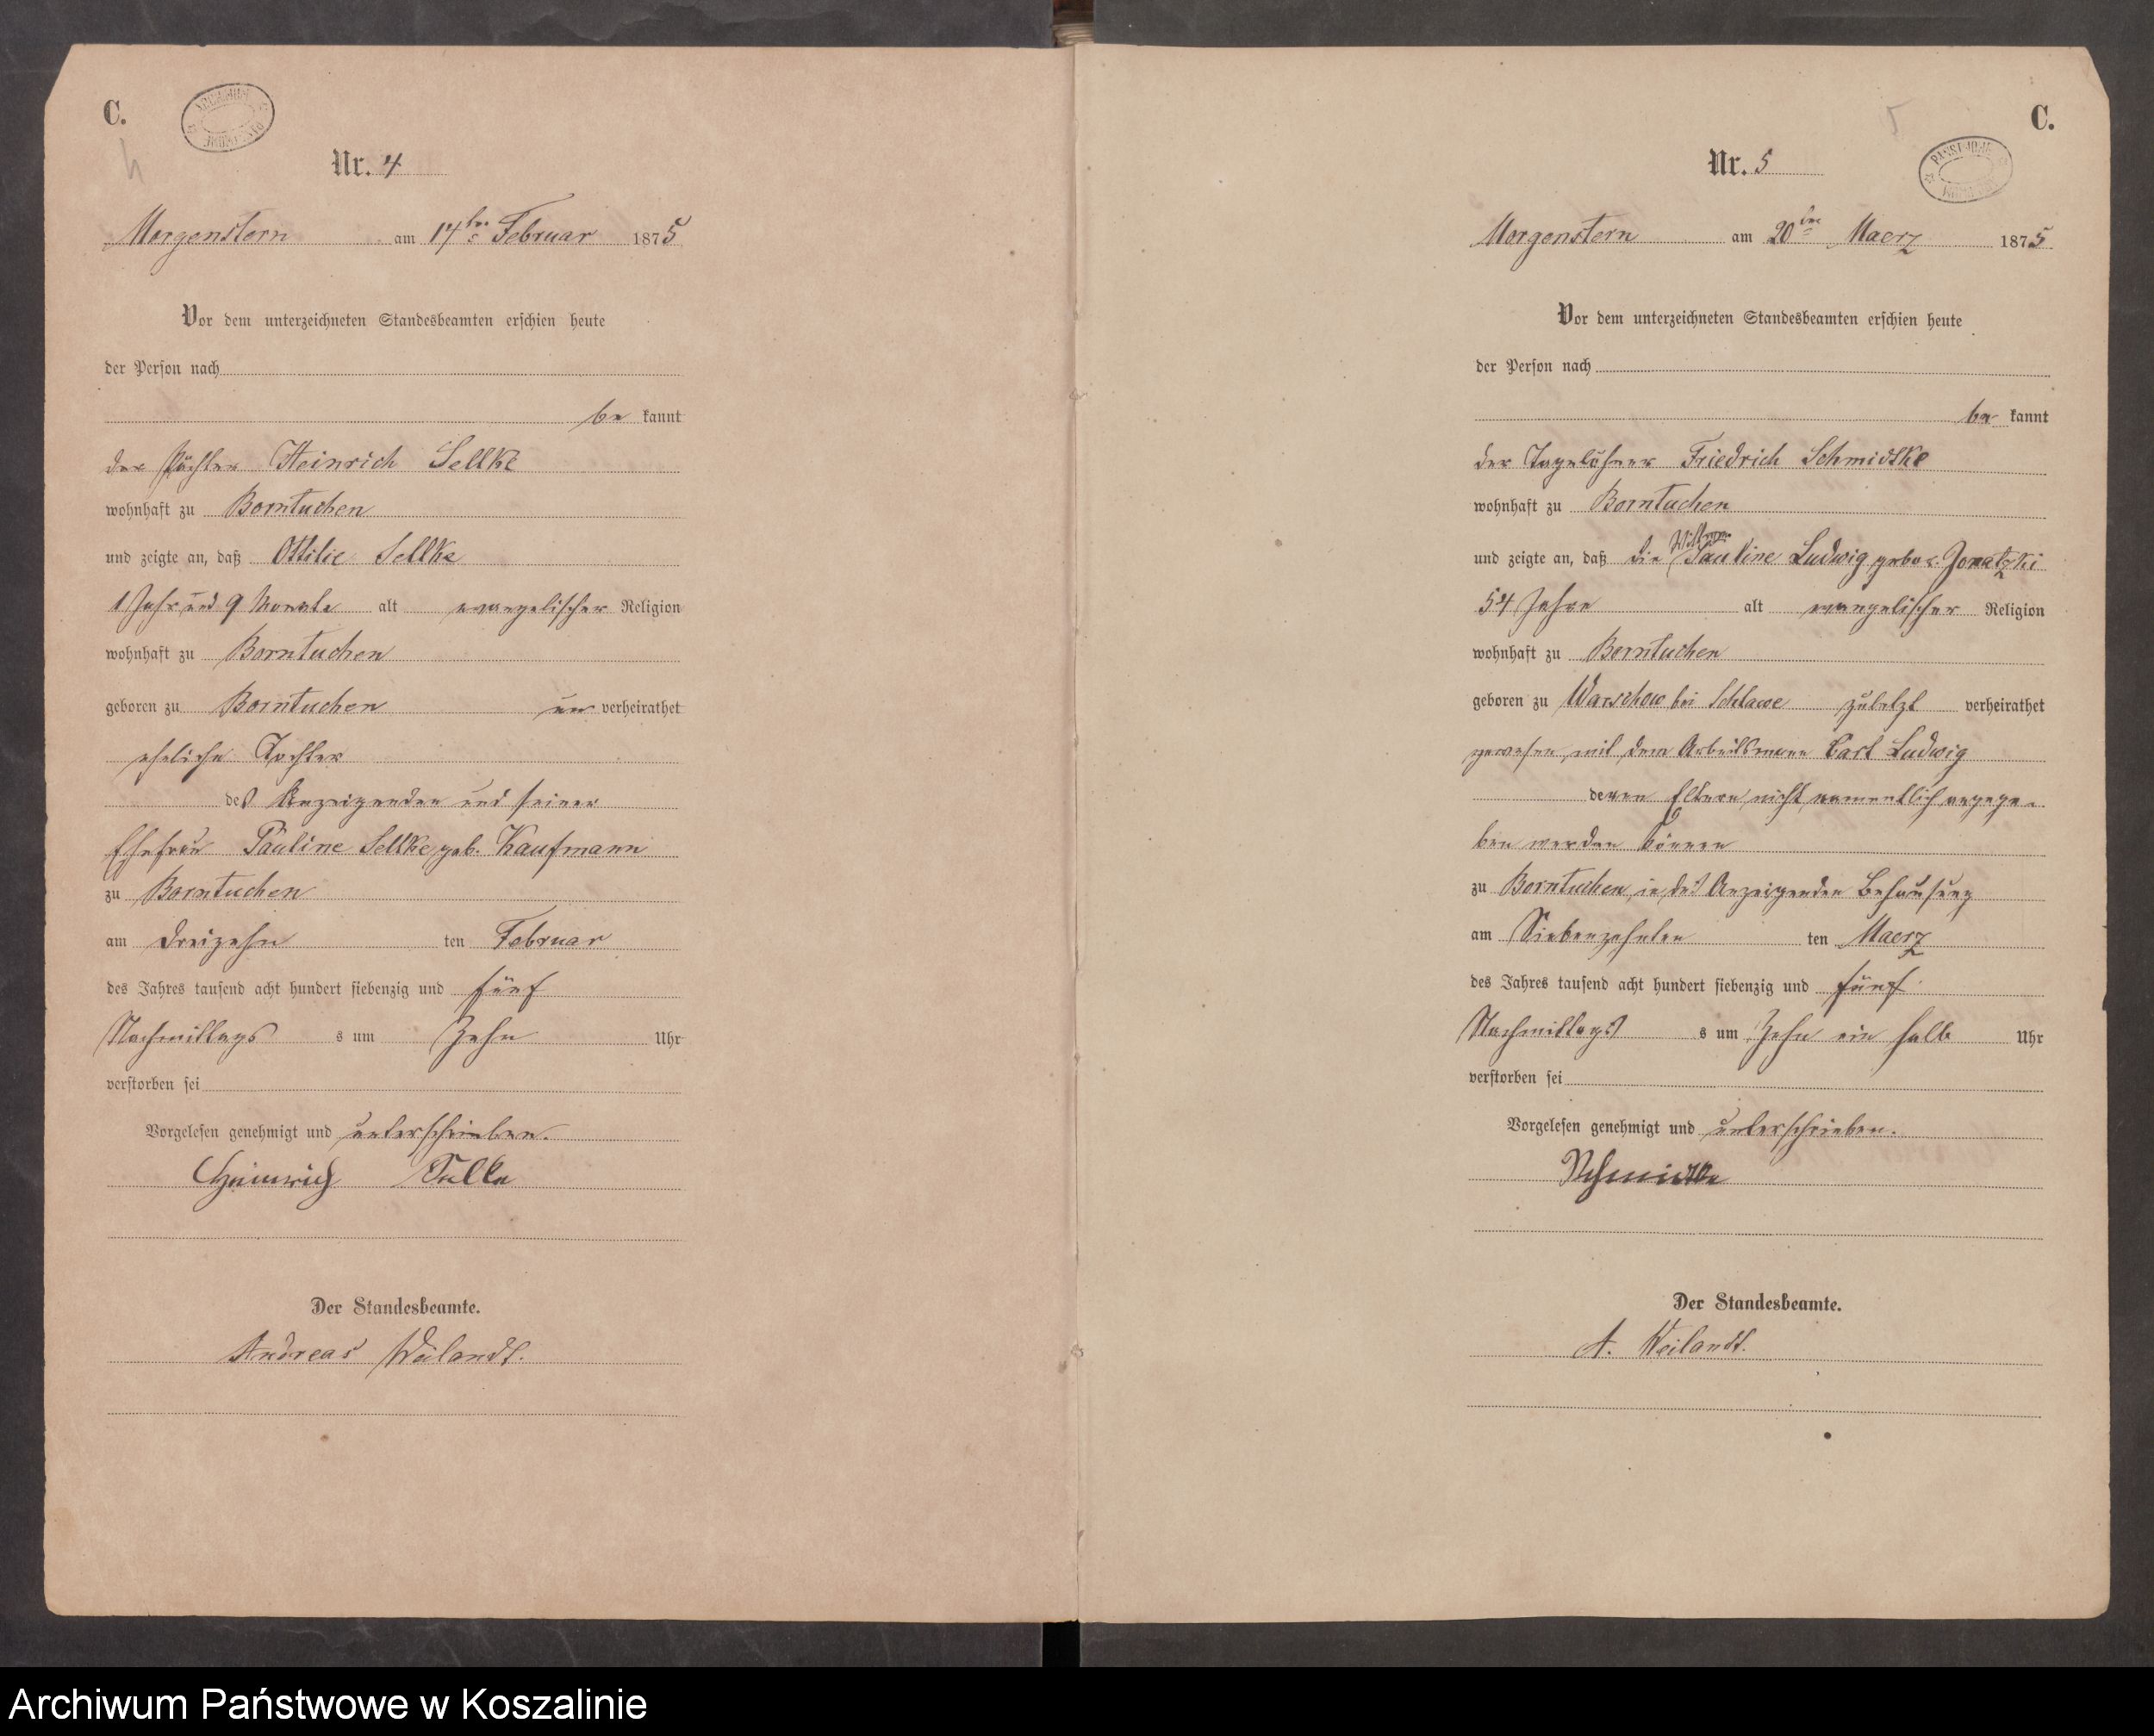 C.
4
Nr. 4
Morgenstern am 17ten Februar 1875
Vor dem unterzeichneten Standesbeamten erschien heute
der Person nach
be kannt
der Pächter Heinrich Sellke
wohnhaft zu Borntuchen
und zeigte an, daß Ottilie Sellke
1 Jahr und 9 Monate alt evangelischer Religion
wohnhaft zu Borntuchen
geboren zu Borntuchen un verheirathet
eheliche Tochter
des Anzeigenden und seiner
Ehefrau Pauline Sellke geb. Kaufmann
zu Borntuchen
am dreizehn ten Februar
des Jahres tausend acht hundert siebenzig und fünf
Nachmittags s um Zehn Uhr
verstorben sei
Vorgelesen genehmigt und unterschrieben.
Heinrich Sellke
Der Standesbeamte.
Andreas Weilandt.
5
C.
PAŃSTWOWE
Nr. 5
Morgenstern am 20ten Maerz 1875
Vor dem unterzeichneten Standesbeamten erschien heute
der Person nach
be kannt
der Tagelöhner Friedrich Schmidtke
wohnhaft zu Borntuchen
Wittwe
und zeigte an, daß die Pauline Ludwig gebor.
54 Jahre alt evangelischer Religion
wohnhaft zu Borntuchen
geboren zu Warschow bei Schlawe zuletzt verheirathet
gewesen mit dem Arbeitsmann Carl Ludwig
deren Eltern nicht namentlich angege-
ben werden können
zu Borntuchen, in des Anzeigenden Behausung
am Siebenzehnten ten Maerz
des Jahres tausend acht hundert siebenzig und fünf
Nachmittags s um Zehn ein halb Uhr
verstorben sei
Vorgelesen genehmigt und unterschrieben.
Schmidtke
Der Standesbeamte.
A. Weilandt.
Archiwum Państwowe w Koszalinie